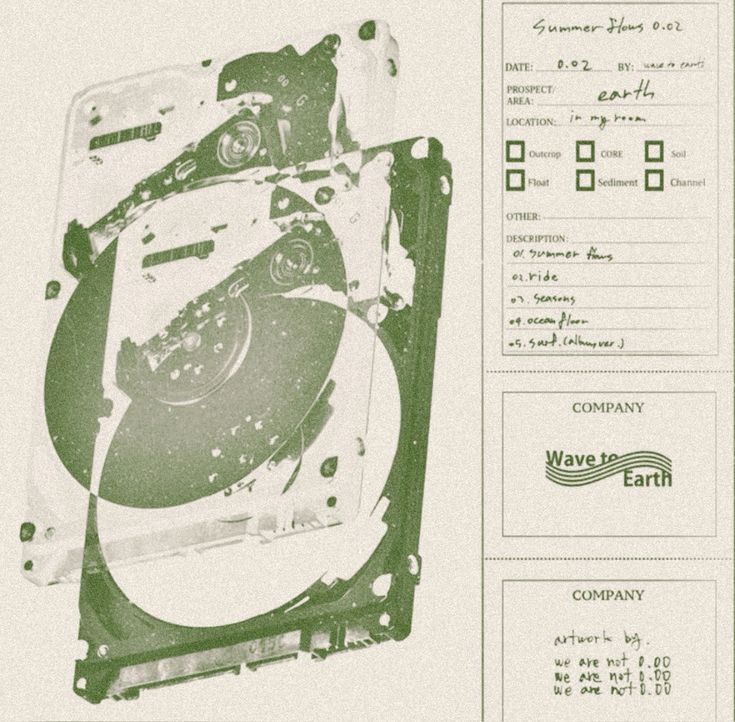 Summer flows 0.02
DATE: 0.02 BY: wave to earth
PROSPECT/
AREA: earth
LOCATION: in my room
Outcrop CORE Soil
Float Sediment Channel
OTHER:
DESCRIPTION:
01. Summer flows
02. ride
03. seasons
04. ocean floor
05. surf. (album ver.)
COMPANY
Wave to
Earth
COMPANY
artwork by.
we are not 0.00
we are not 0.00
we are not 0.00